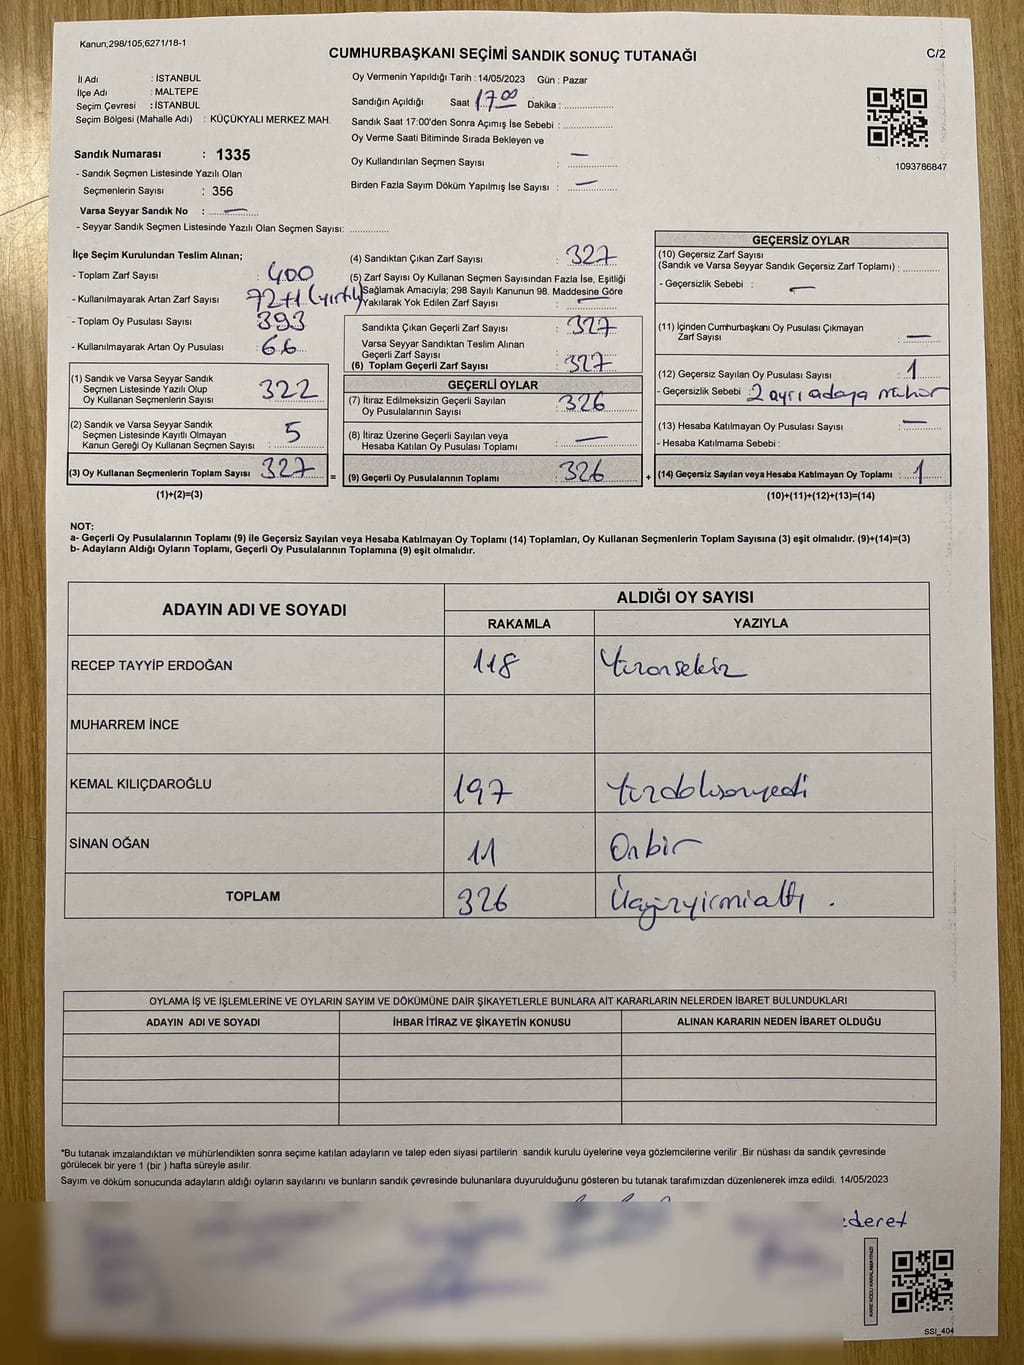 Kanun;298/105;6271/18-1
CUMHURBAŞKANI SEÇİMİ SANDIK SONUÇ TUTANAĞI
C/2
İl Adı : İSTANBUL
İlçe Adı : MALTEPE
Seçim Çevresi : İSTANBUL
Seçim Bölgesi (Mahalle Adı) : KÜÇÜKYALI MERKEZ MAH.
Sandık Numarası : 1335
- Sandık Seçmen Listesinde Yazılı Olan
Seçmenlerin Sayısı : 356
Varsa Seyyar Sandık No : —
- Seyyar Sandık Seçmen Listesinde Yazılı Olan Seçmen Sayısı: ............
Oy Vermenin Yapıldığı Tarih : 14/05/2023 Gün : Pazar
Sandığın Açıldığı Saat 17.00 Dakika : ...............
Sandık Saat 17:00'den Sonra Açımış İse Sebebi : ...............
Oy Verme Saati Bitiminde Sırada Bekleyen ve
Oy Kullandırılan Seçmen Sayısı : —
Birden Fazla Sayım Döküm Yapılmış İse Sayısı : —
1093786847
İlçe Seçim Kurulundan Teslim Alınan;
- Toplam Zarf Sayısı : 400
- Kullanılmayarak Artan Zarf Sayısı 72+1 (yırtık)
- Toplam Oy Pusulası Sayısı : 393
- Kullanılmayarak Artan Oy Pusulası : 66
(1) Sandık ve Varsa Seyyar Sandık
Seçmen Listesinde Yazılı Olup
Oy Kullanan Seçmenlerin Sayısı : 322
(2) Sandık ve Varsa Seyyar Sandık
Seçmen Listesinde Kayıtlı Olmayan
Kanun Gereği Oy Kullanan Seçmen Sayısı : 5
(3) Oy Kullanan Seçmenlerin Toplam Sayısı : 327
(1)+(2)=(3)
(4) Sandıktan Çıkan Zarf Sayısı : 327
(5) Zarf Sayısı Oy Kullanan Seçmen Sayısından Fazla İse, Eşitliği
Sağlamak Amacıyla; 298 Sayılı Kanunun 98. Maddesine Göre
Yakılarak Yok Edilen Zarf Sayısı : —
Sandıkta Çıkan Geçerli Zarf Sayısı : 327
Varsa Seyyar Sandıktan Teslim Alınan
Geçerli Zarf Sayısı :
(6) Toplam Geçerli Zarf Sayısı : 327
GEÇERLİ OYLAR
(7) İtiraz Edilmeksizin Geçerli Sayılan
Oy Pusulalarının Sayısı : 326
(8) İtiraz Üzerine Geçerli Sayılan veya
Hesaba Katılan Oy Pusulası Toplamı : —
= (9) Geçerli Oy Pusulalarının Toplamı : 326
GEÇERSİZ OYLAR
(10) Geçersiz Zarf Sayısı
(Sandık ve Varsa Seyyar Sandık Geçersiz Zarf Toplamı) : ............
- Geçersizlik Sebebi : —
(11) İçinden Cumhurbaşkanı Oy Pusulası Çıkmayan
Zarf Sayısı : —
(12) Geçersiz Sayılan Oy Pusulası Sayısı : 1
- Geçersizlik Sebebi : 2 ayrı adaya mühür
(13) Hesaba Katılmayan Oy Pusulası Sayısı : —
- Hesaba Katılmama Sebebi :
+ (14) Geçersiz Sayılan veya Hesaba Katılmayan Oy Toplamı : 1
(10)+(11)+(12)+(13)=(14)
NOT:
a- Geçerli Oy Pusulalarının Toplamı (9) ile Geçersiz Sayılan veya Hesaba Katılmayan Oy Toplamı (14) Toplamları, Oy Kullanan Seçmenlerin Toplam Sayısına (3) eşit olmalıdır. (9)+(14)=(3)
b- Adayların Aldığı Oyların Toplamı, Geçerli Oy Pusulalarının Toplamına (9) eşit olmalıdır.
ADAYIN ADI VE SOYADI
ALDIĞI OY SAYISI
RAKAMLA YAZIYLA
RECEP TAYYİP ERDOĞAN 118 Yüzonsekiz
MUHARREM İNCE
KEMAL KILIÇDAROĞLU 197 Yüzdoksanyedi
SİNAN OĞAN 11 Onbir
TOPLAM 326 Üçyüzyirmialtı .
OYLAMA İŞ VE İŞLEMLERİNE VE OYLARIN SAYIM VE DÖKÜMÜNE DAİR ŞİKAYETLERLE BUNLARA AİT KARARLARIN NELERDEN İBARET BULUNDUKLARI
ADAYIN ADI VE SOYADI İHBAR İTİRAZ VE ŞİKAYETİN KONUSU ALINAN KARARIN NEDEN İBARET OLDUĞU
*Bu tutanak imzalandıktan ve mühürlendikten sonra seçime katılan adayların ve talep eden siyasi partilerin sandık kurulu üyelerine veya gözlemcilerine verilir .Bir nüshası da sandık çevresinde
görülecek bir yere 1 (bir ) hafta süreyle asılır.
Sayım ve döküm sonucunda adayların aldığı oyların sayılarını ve bunların sandık çevresinde bulunanlara duyurulduğunu gösteren bu tutanak tarafımızdan düzenlenerek imza edildi. 14/05/2023
ederet
KARE KODU KARALAMAYINIZ!
SSI_404